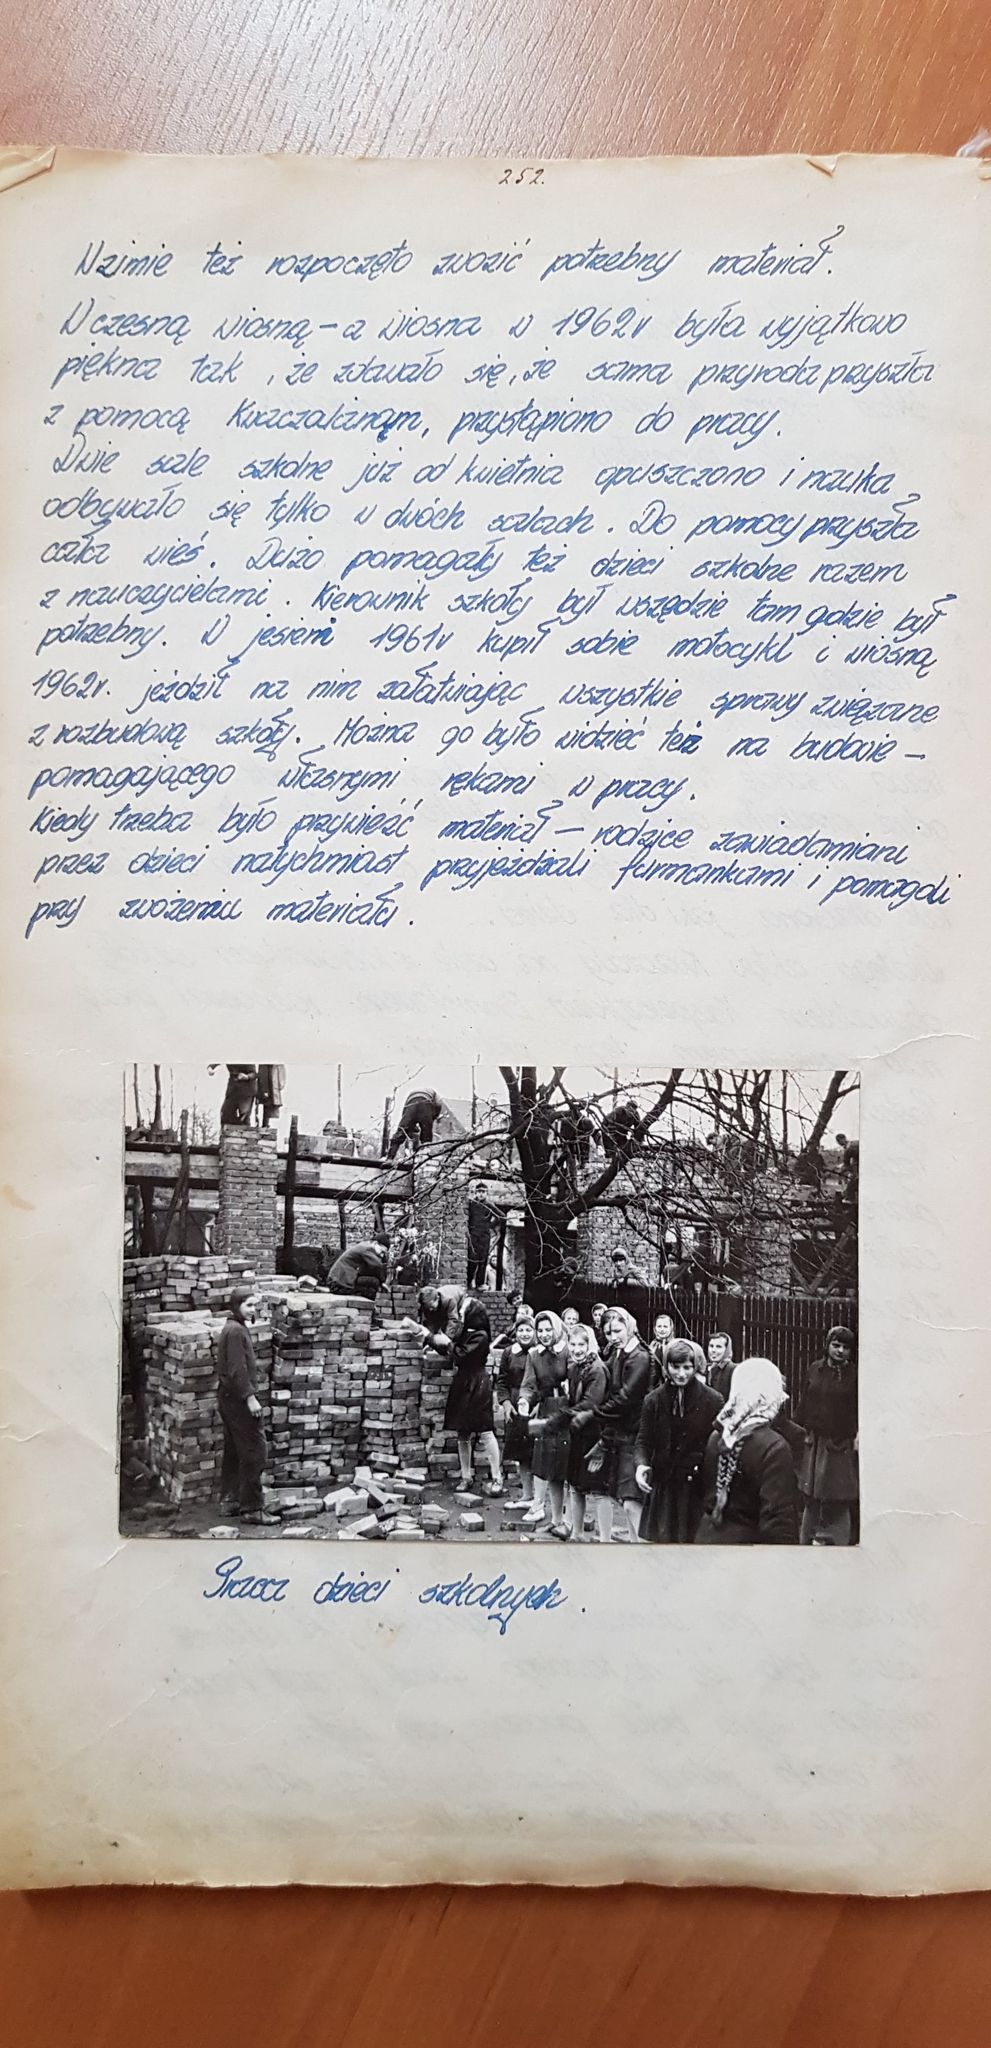 252.
W zimie też rozpoczęto zwozić potrzebny materiał.
Wczesną wiosną – a wiosna w 1962r była wyjątkowo
piękna tak, że zdawało się, że sama przyroda przyszła
z pomocą Kwaczalanom, przystąpiono do pracy.
Dwie sale szkolne już od kwietnia opuszczono i nauka
odbywało się tylko w dwóch salach. Do pomocy przyszła
cała wieś. Dużo pomagały też dzieci szkolne razem
z nauczycielami. Kierownik szkoły był wszędzie tam gdzie był
potrzebny. W jesieni 1961r kupił sobie motocykl i wiosną
1962r. jeździł na nim załatwiając wszystkie sprawy związane
z rozbudową szkoły. Można go było widzieć też na budowie –
pomagającego własnymi rękami w pracy.
Kiedy trzeba było przywieźć materiał – rodzice zawiadamiani
przez dzieci natychmiast przyjeżdżali furmankami i pomagali
przy zwożeniu materiału.
Praca dzieci szkolnych.